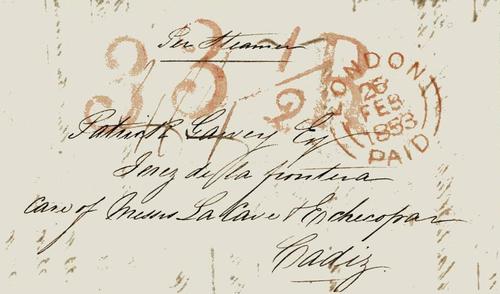 Per Steamer
33 1/2 R
LONDON
26
FEB
1853
PAID
Patrick Garvey Esq
Jerez de la frontera
care of Messrs La Cave & Echecopar
Cadiz.